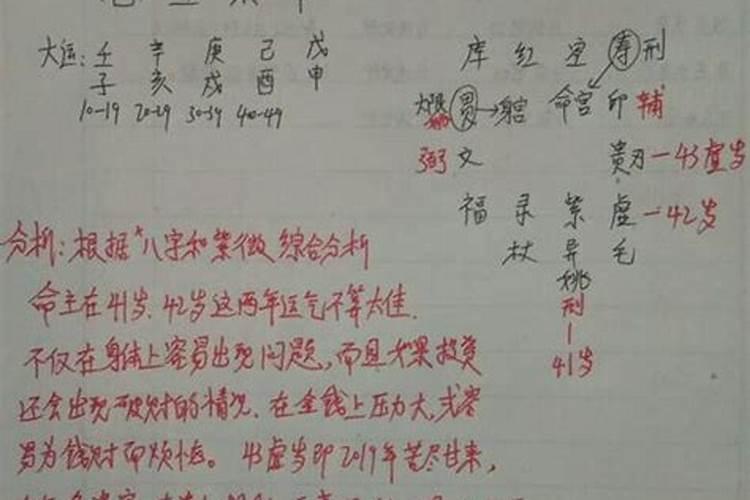 大运: 壬 辛 庚 己 戊
子 亥 戌 酉 申
10-19 20-29 30-39 40-49
库 红 空 寿 刑
大限 贯 → 身宫 命宫 印 辅
弼 文 贵 刃 一43虚岁
福 录 紫 虚 一42岁
杖 异 毛
姚
刑
41岁
分析: 根据"八字和紫微综合分析
命主在41岁、42岁这两年运气不算太佳.
不仅在身体上容易出现问题, 而且如果投资
还会出现破财的情况. 在金钱上压力大, 或容
易为钱财而烦恼。 43虚岁即2019年苦尽甘来,